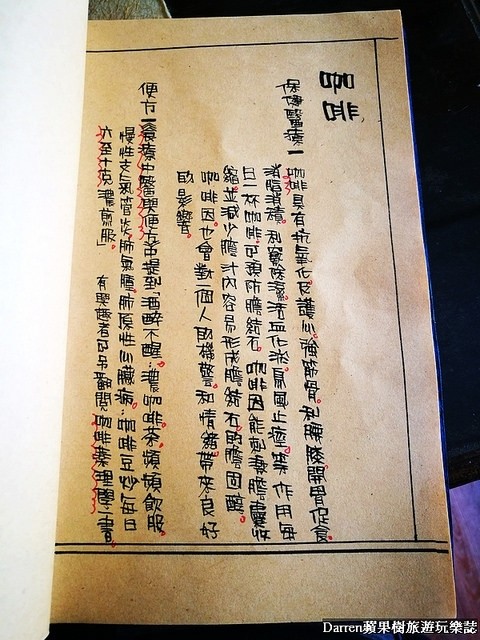 咖啡
保健醫療－咖啡具有抗氧化及護心、強筋骨、利腰膝、開胃促食、
消脂消積、利竅除濕、活血化淤、息風止痙等作用。每
日一杯咖啡，可預防膽結石。咖啡因能刺激膽囊收
縮，並減少膽汁內容易形成膽結石的膽固醇。
咖啡因也會對一個人的機警和情緒帶來良好
的影響。
便方－食療中醫與便方書中提到：酒醉不醒：濃咖啡茶頻頻飲服。
慢性支氣管炎、肺氣腫、肺原性心臟病：咖啡豆炒每日
六至十克濃煎服」有興趣者可另翻閱咖啡藥理學一書。
Darren蘋果樹旅遊玩樂誌